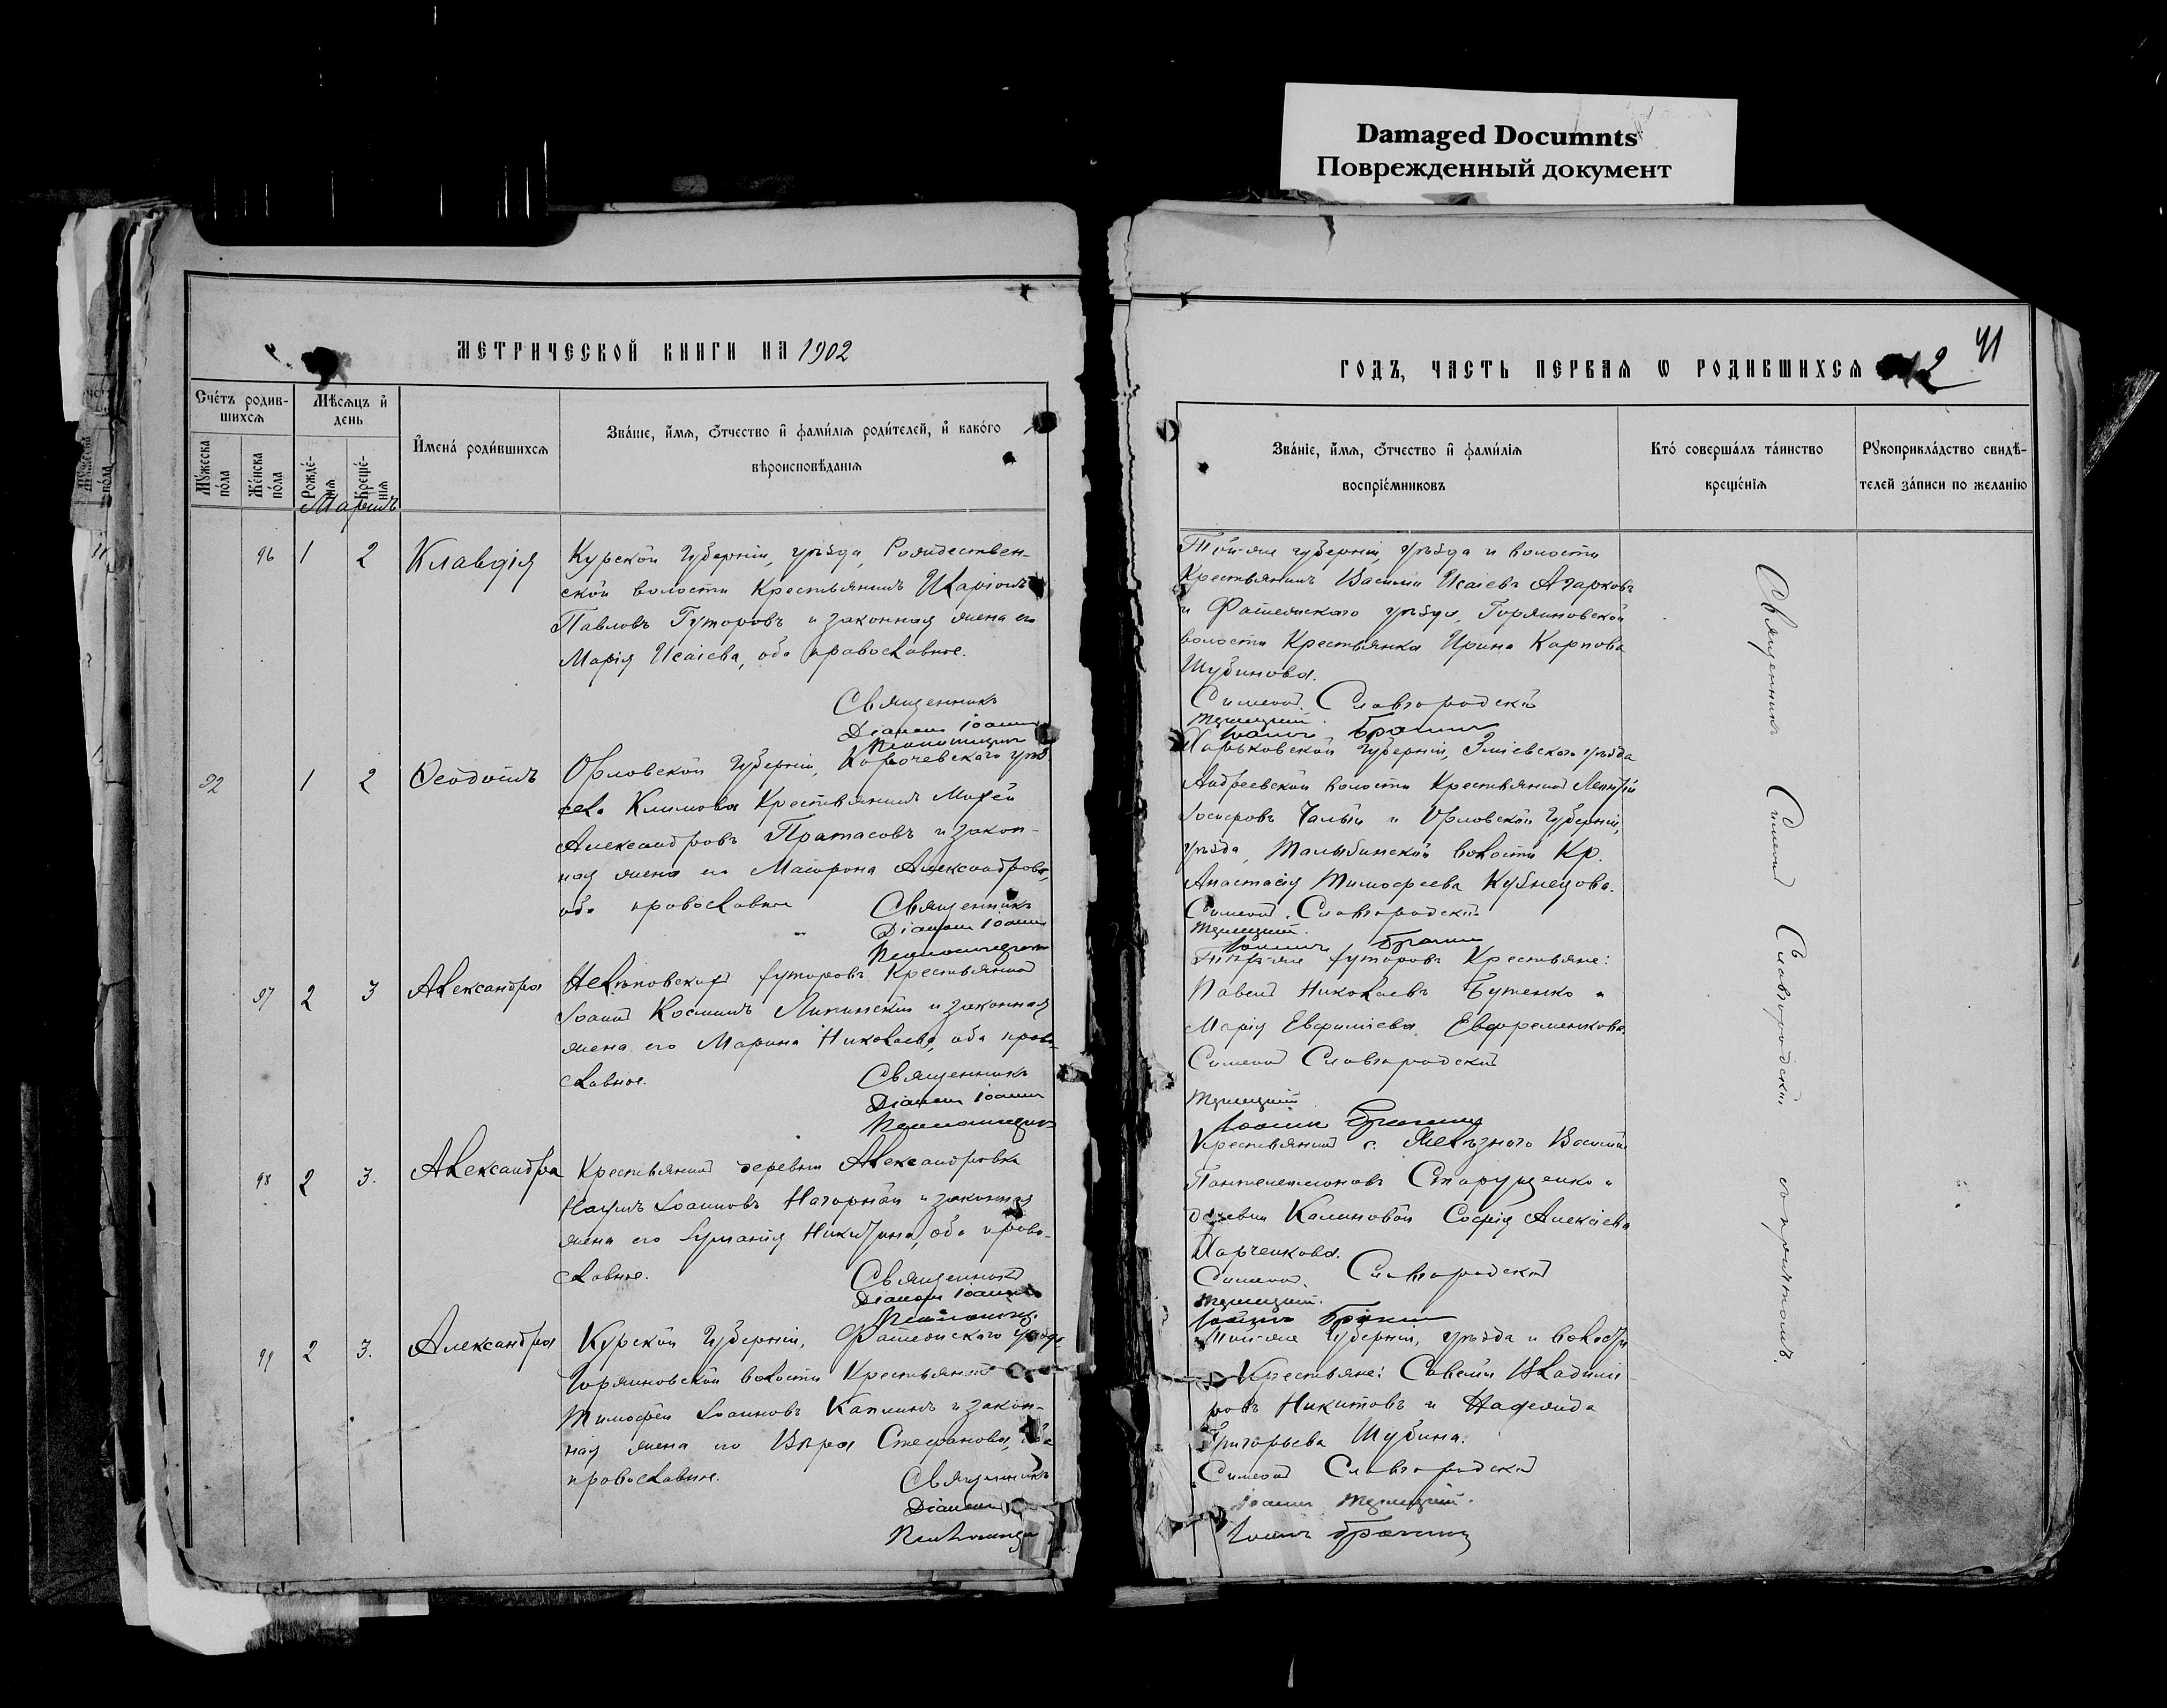 Damaged Documnts
Поврежденный документ
МЕТРИЧЕСКОЙ КНИГИ НА 1902
Счетъ родив-
шихся
Мѣсяцъ и
день
Мужеска
пола
Женска
пола
Рожде-
нія
Креще-
нія
Имена родившихся
Званіе, имя, отчество и фамилія родителей, и какого
вѣроисповѣданія
Мартъ
96 1 2 Клавдія
Курской Губерніи, уѣзда, Рождествен-
ской волости Крестьянинъ Иларіонъ
Павловъ Гуторовъ и законная жена его
Марія Исаіева, оба православные.
Священникъ
Діаконъ Іоаннъ
92 1 2 Феодотъ
Орловской Губерніи, Карачевского уѣз.
села Климова Крестьянинъ
Александровъ Пратасовъ и закон-
ная жена его Матрона Александрова,
оба православные
Священникъ
Діаконъ Іоаннъ
97 2 3 Александра
хуторовъ Крестьянинъ
Іоаннъ Косминъ Липинскій и законная
жена его Марина Николаева, оба право-
славные.
Священникъ
Діаконъ Іоаннъ
98 2 3. Александра
Крестьянинъ деревни Александровки
Наумъ Іоанновъ Нагорный и законная
жена его Никитина, оба право-
славные.
Священникъ
Діаконъ Іоаннъ
99 2 3. Александра
Курской Губерніи, Фатежского уѣзда,
волости Крестьянинъ
Тимофей Іоанновъ Каплинъ и закон-
ная жена его Вѣра Стефанова, оба
православные.
Священникъ
Діаконъ
ГОДЪ, ЧАСТЬ ПЕРВАЯ Ѡ РОДИВШИХСЯ
12 41
Званіе, имя, отчество и фамилія
воспріемниковъ
Кто совершалъ таинство
крещенія
Рукоприкладство свидѣ-
телей записи по желанію
Той-же губерніи, уѣзда и волости
Крестьянинъ Василій Исаіевъ Азарковъ
и Фатежского уѣзда,
волости Крестьянка Ирина Карпова
Шубинова.
Симеонъ Славгородскій
Іоаннъ
Харьковской Губерніи, Зміевского уѣзда
Андреевской волости Крестьянинъ
Іосифовъ и Орловской Губерніи,
уѣзда, волости Кр.
Анастасія Тимофеева Кузнецова.
Симеонъ Славгородскій
Іоаннъ
хуторовъ Крестьяне:
Павелъ Николаевъ Бутенко и
Марія Евфиміева Ефременкова
Симеонъ Славгородскій
Іоаннъ
Крестьянинъ с. Желѣзного Василій
Пантелеимоновъ Старущенко и
деревни Калиновой Софія Алексіева
Харченкова.
Симеонъ Славгородскій
Іоаннъ
Той-же Губерніи, уѣзда и волости
Крестьяне: Савелій Владимі-
ровъ Никитовъ и Надежда
Григорьева Шубина.
Симеонъ Славгородскій
Іоаннъ
Іоаннъ
Священникъ Симеонъ Славгородскій съ причтомъ.